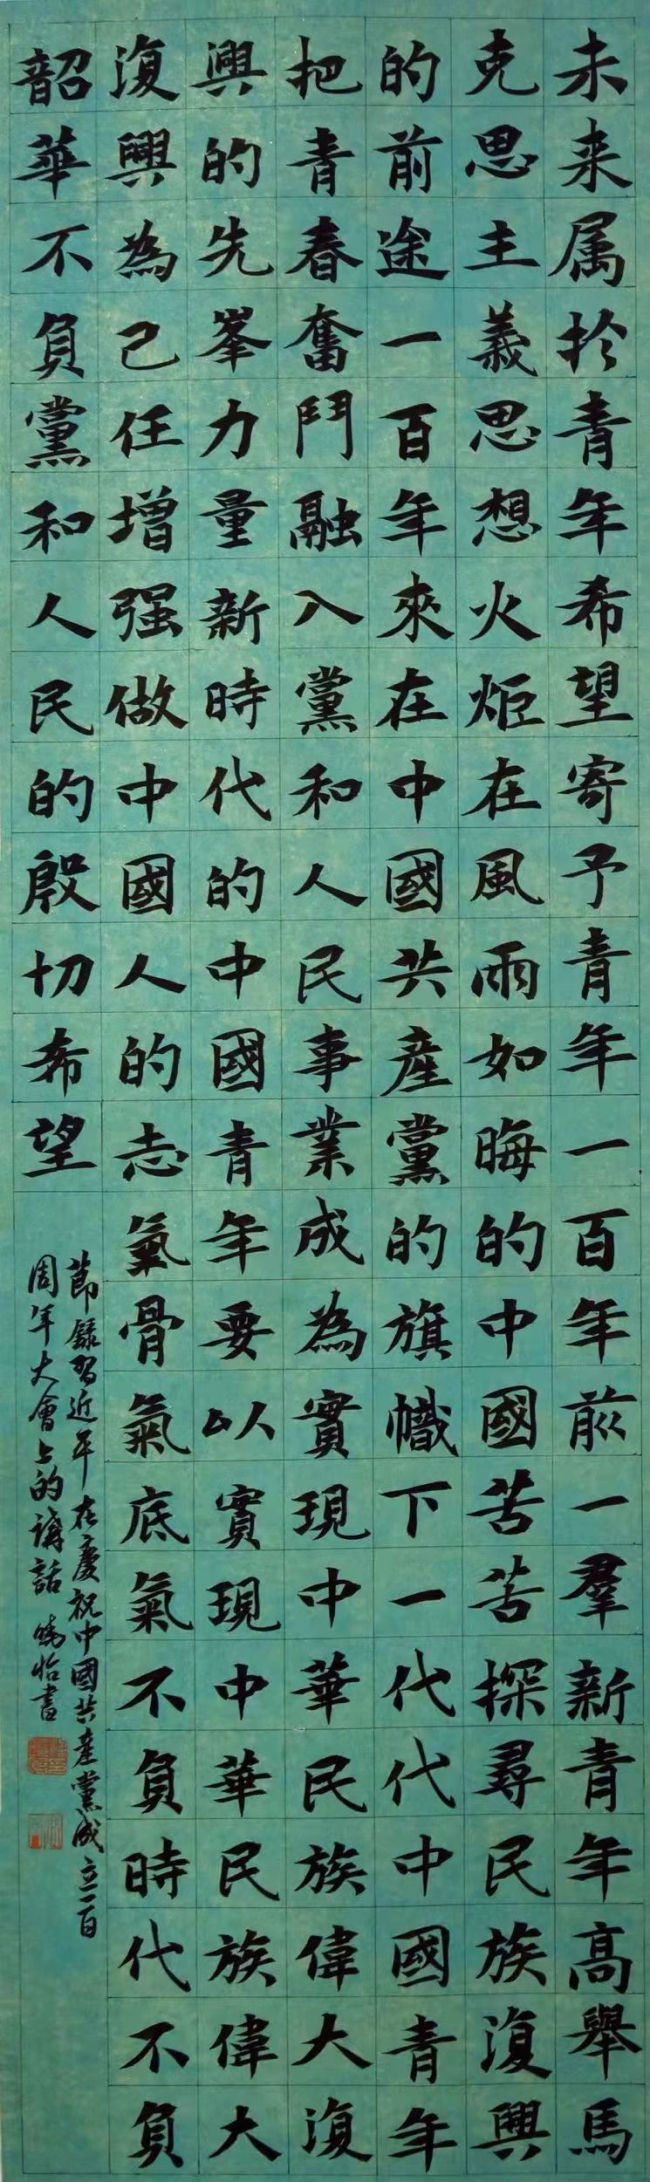 未来属於青年希望寄予青年一百年前一羣新青年高舉馬
克思主義思想火炬在風雨如晦的中國苦苦探尋民族復興
的前途一百年來在中國共產黨的旗幟下一代代中國青年
把青春奮鬥融入黨和人民事業成為實現中華民族偉大復
興的先峯力量新時代的中國青年要以實現中華民族偉大
復興為己任增强做中國人的志氣骨氣底氣不負時代不負
韶華不負黨和人民的殷切希望
節錄習近平在慶祝中國共產黨成立一百
周年大會上的講話 怡書